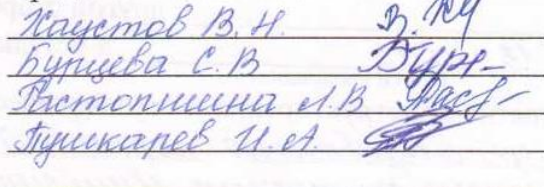 Хаустов В. Н.
Бурцева С. В
Растопшина Л. В
Пушкарев И. А.